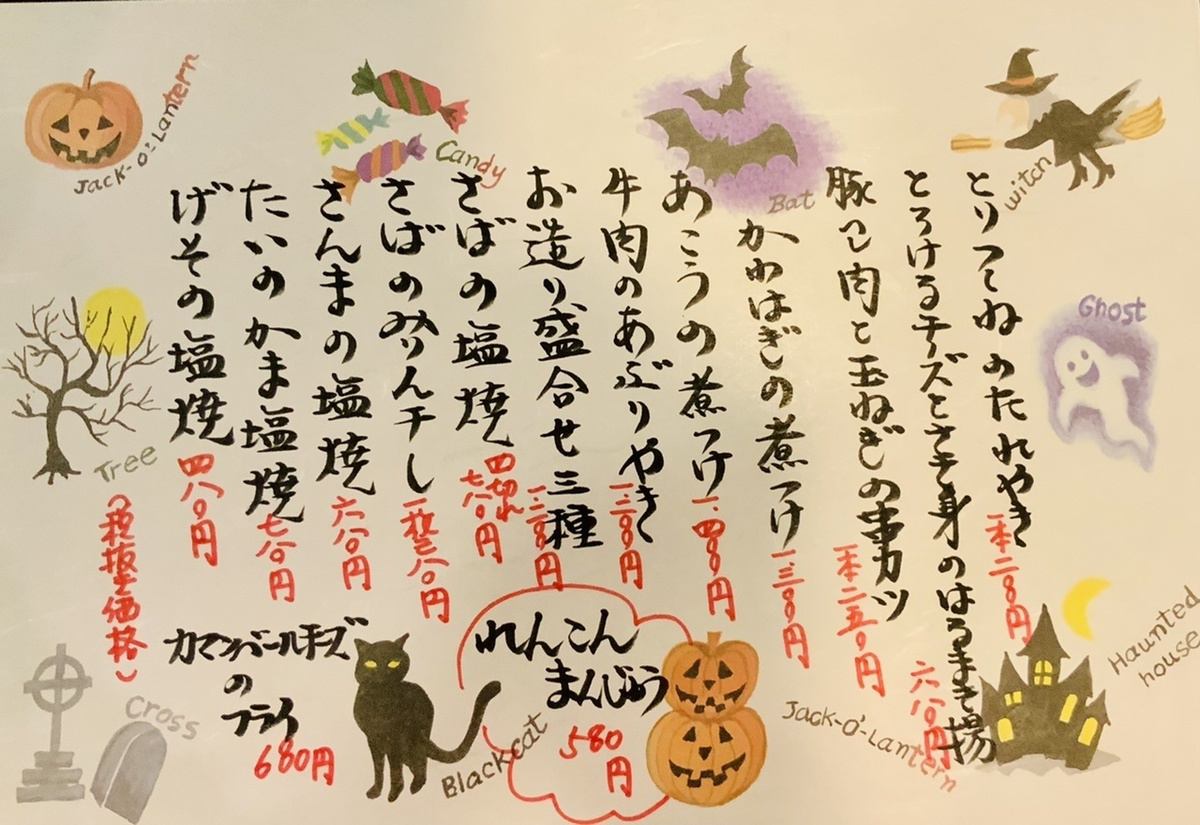 とりつくねのたれやき 一本二八〇円
とろけるチーズとささ身のはるまき揚 六八〇円
豚ロ肉と玉ねぎの串カツ 一本二五〇円
かわはぎの煮つけ 一、三〇〇円
あこうの煮つけ 一、四〇〇円
牛肉のあぶりやき 一二〇〇円
お造り盛合せ三種 一、二〇〇円
さばの塩焼 四切れ 七八〇円
さばのみりん干し 一枚三八〇円
さんまの塩焼 六八〇円
たいのかま塩焼 七八〇円
げその塩焼 四八〇円
(税抜き価格)
れんこん
まんじゅう
580
円
カマンベールチーズ
の
フライ
680円
Jack-O'-Lantern
Candy
Bat
witch
Ghost
Tree
Haunted
house
Cross
Blackcat
Jack-O'-Lantern